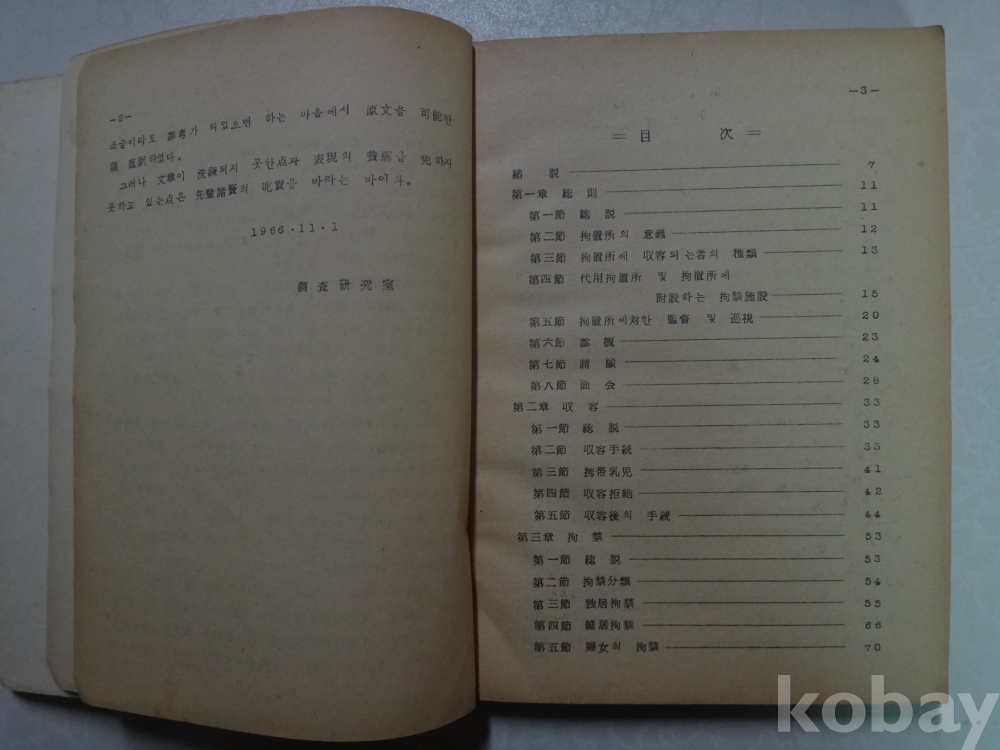 -2-
소금이라도 參考가 되었으면 하는 마음에서 原文을 可能한
限 直訳하였다.
그러나 文章이 洗練되지 못한点과 表現의 을 免하지
못하고 있는点은 先輩諸賢의 叱責을 바라는 바이다.
1966·11·1
調査研究室
-3-
=目 次=
緖 説 7
第一章 総 則 11
第一節 総 説 11
第二節 拘置所의 意義 12
第三節 拘置所에 収容되는者의 種類 13
第四節 代用拘置所 및 拘置所에
附設하는 拘禁施設 15
第五節 拘置所에対한 監督 및 巡視 20
第六節 參 観 23
第七節 請 願 24
第八節 面 会 28
第二章 収 容 33
第一節 総 説 33
第二節 収容手続 33
第三節 携帯乳児 41
第四節 収容拒絶 42
第五節 収容後의 手続 44
第三章 拘 禁 53
第一節 総 説 53
第二節 拘禁分類 54
第三節 独居拘禁 55
第四節 雜居拘禁 66
第五節 婦女의 拘禁 70
kobay